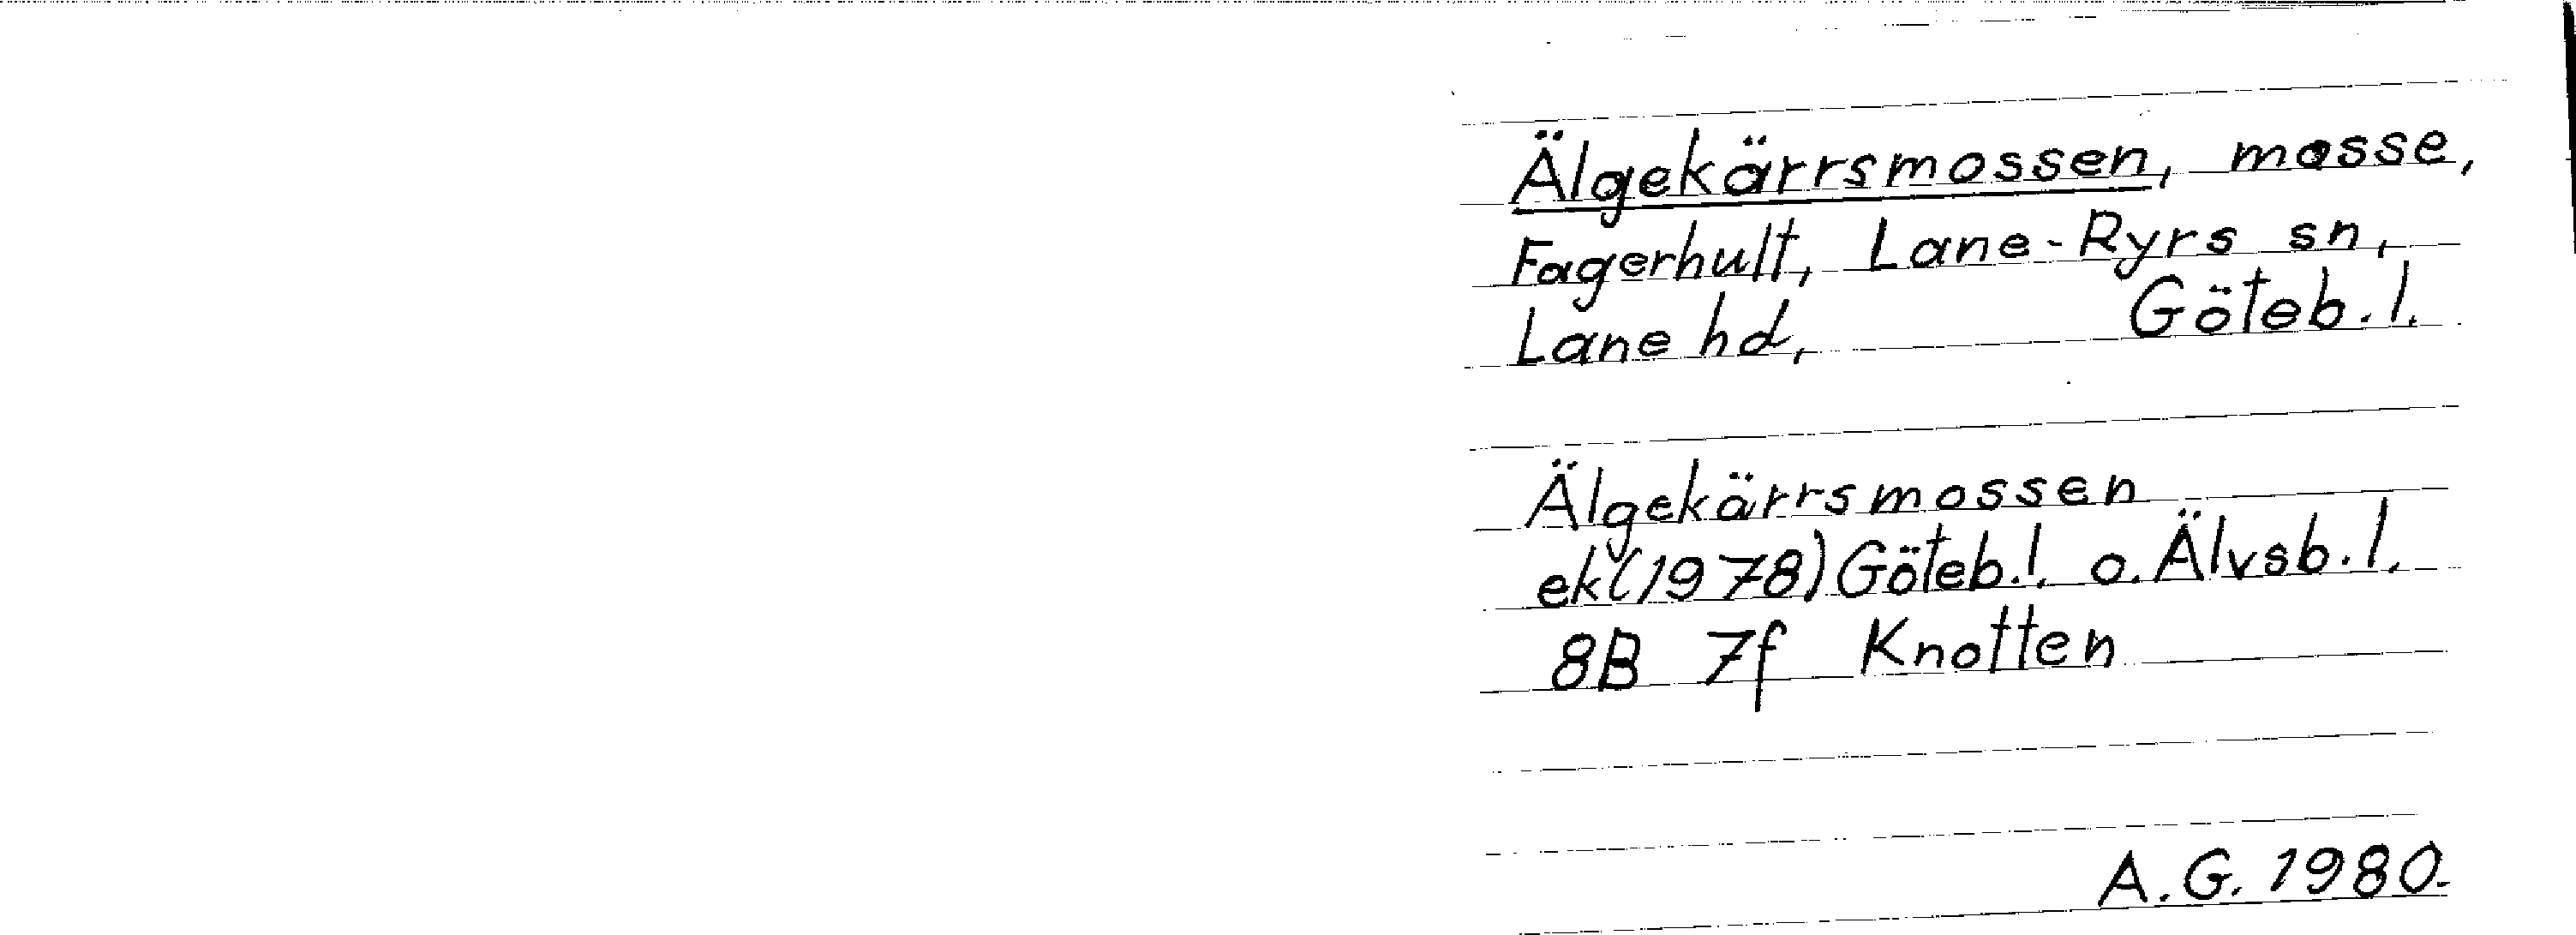 Älgekärrsmossen, mosse,
Fagerhult, Lane-Ryrs sn,
Lane hd, Göteb.l.
Älgekärrsmossen
ek(1978)Göteb.l. o. Älvsb.l.
8B 7f Knotten
A.G. 1980.